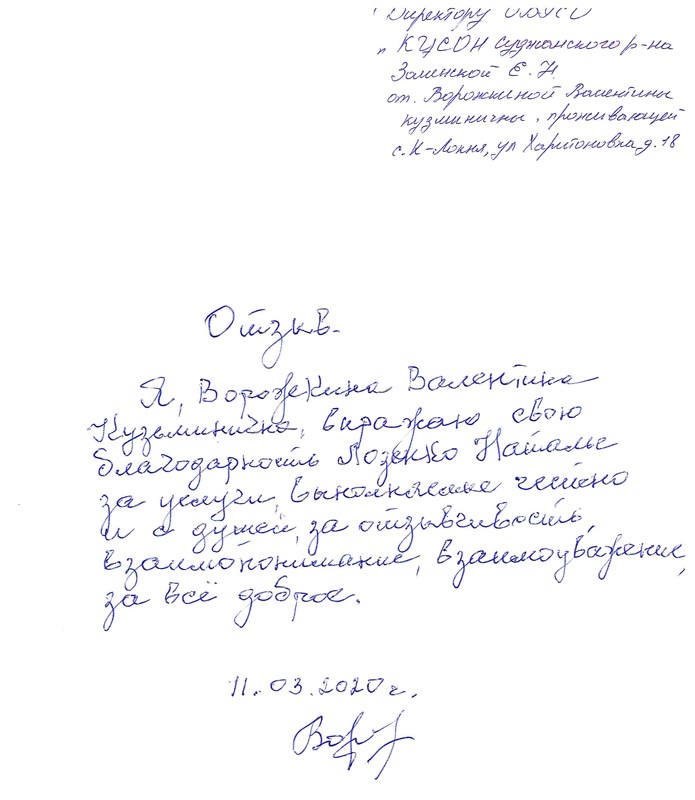 Директору ОБУСО
„КЦСОН Суджанского р-на
Заленской Е. Н.
от. Ворожкиной Валентины
кузминичны, проживающей
с. К-Локня, ул Харитоновка, д. 18
Отзыв.
Я, Ворожкина Валентина
Кузьминична, выражаю свою
благодарность Лозенко Наталье
за услуги, выполняемые честно
и с душей, за отзывчивость,
взаимопонимание, взаимоуважение,
за всё доброе.
11.03.2020г.